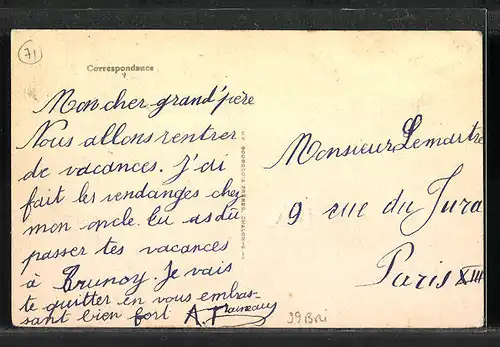 71
Correspondance
Mon cher grand'père
Nous allons rentrer
de vacances. J'ai
fait les vendanges chez
mon oncle. Tu as dû
passer tes vacances
à Brunoy. Je vais
te quitter en vous embras-
sant bien fort A.
Monsieur Lemartre
9 rue du Jura
Paris XIII
BOURGEOIS FRERES, CHALON-S-
39 Bri